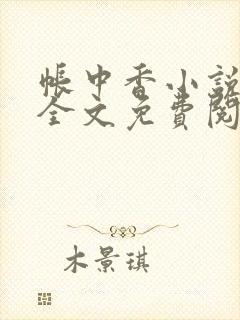 帳中香小說
全文免費閱
木景琪